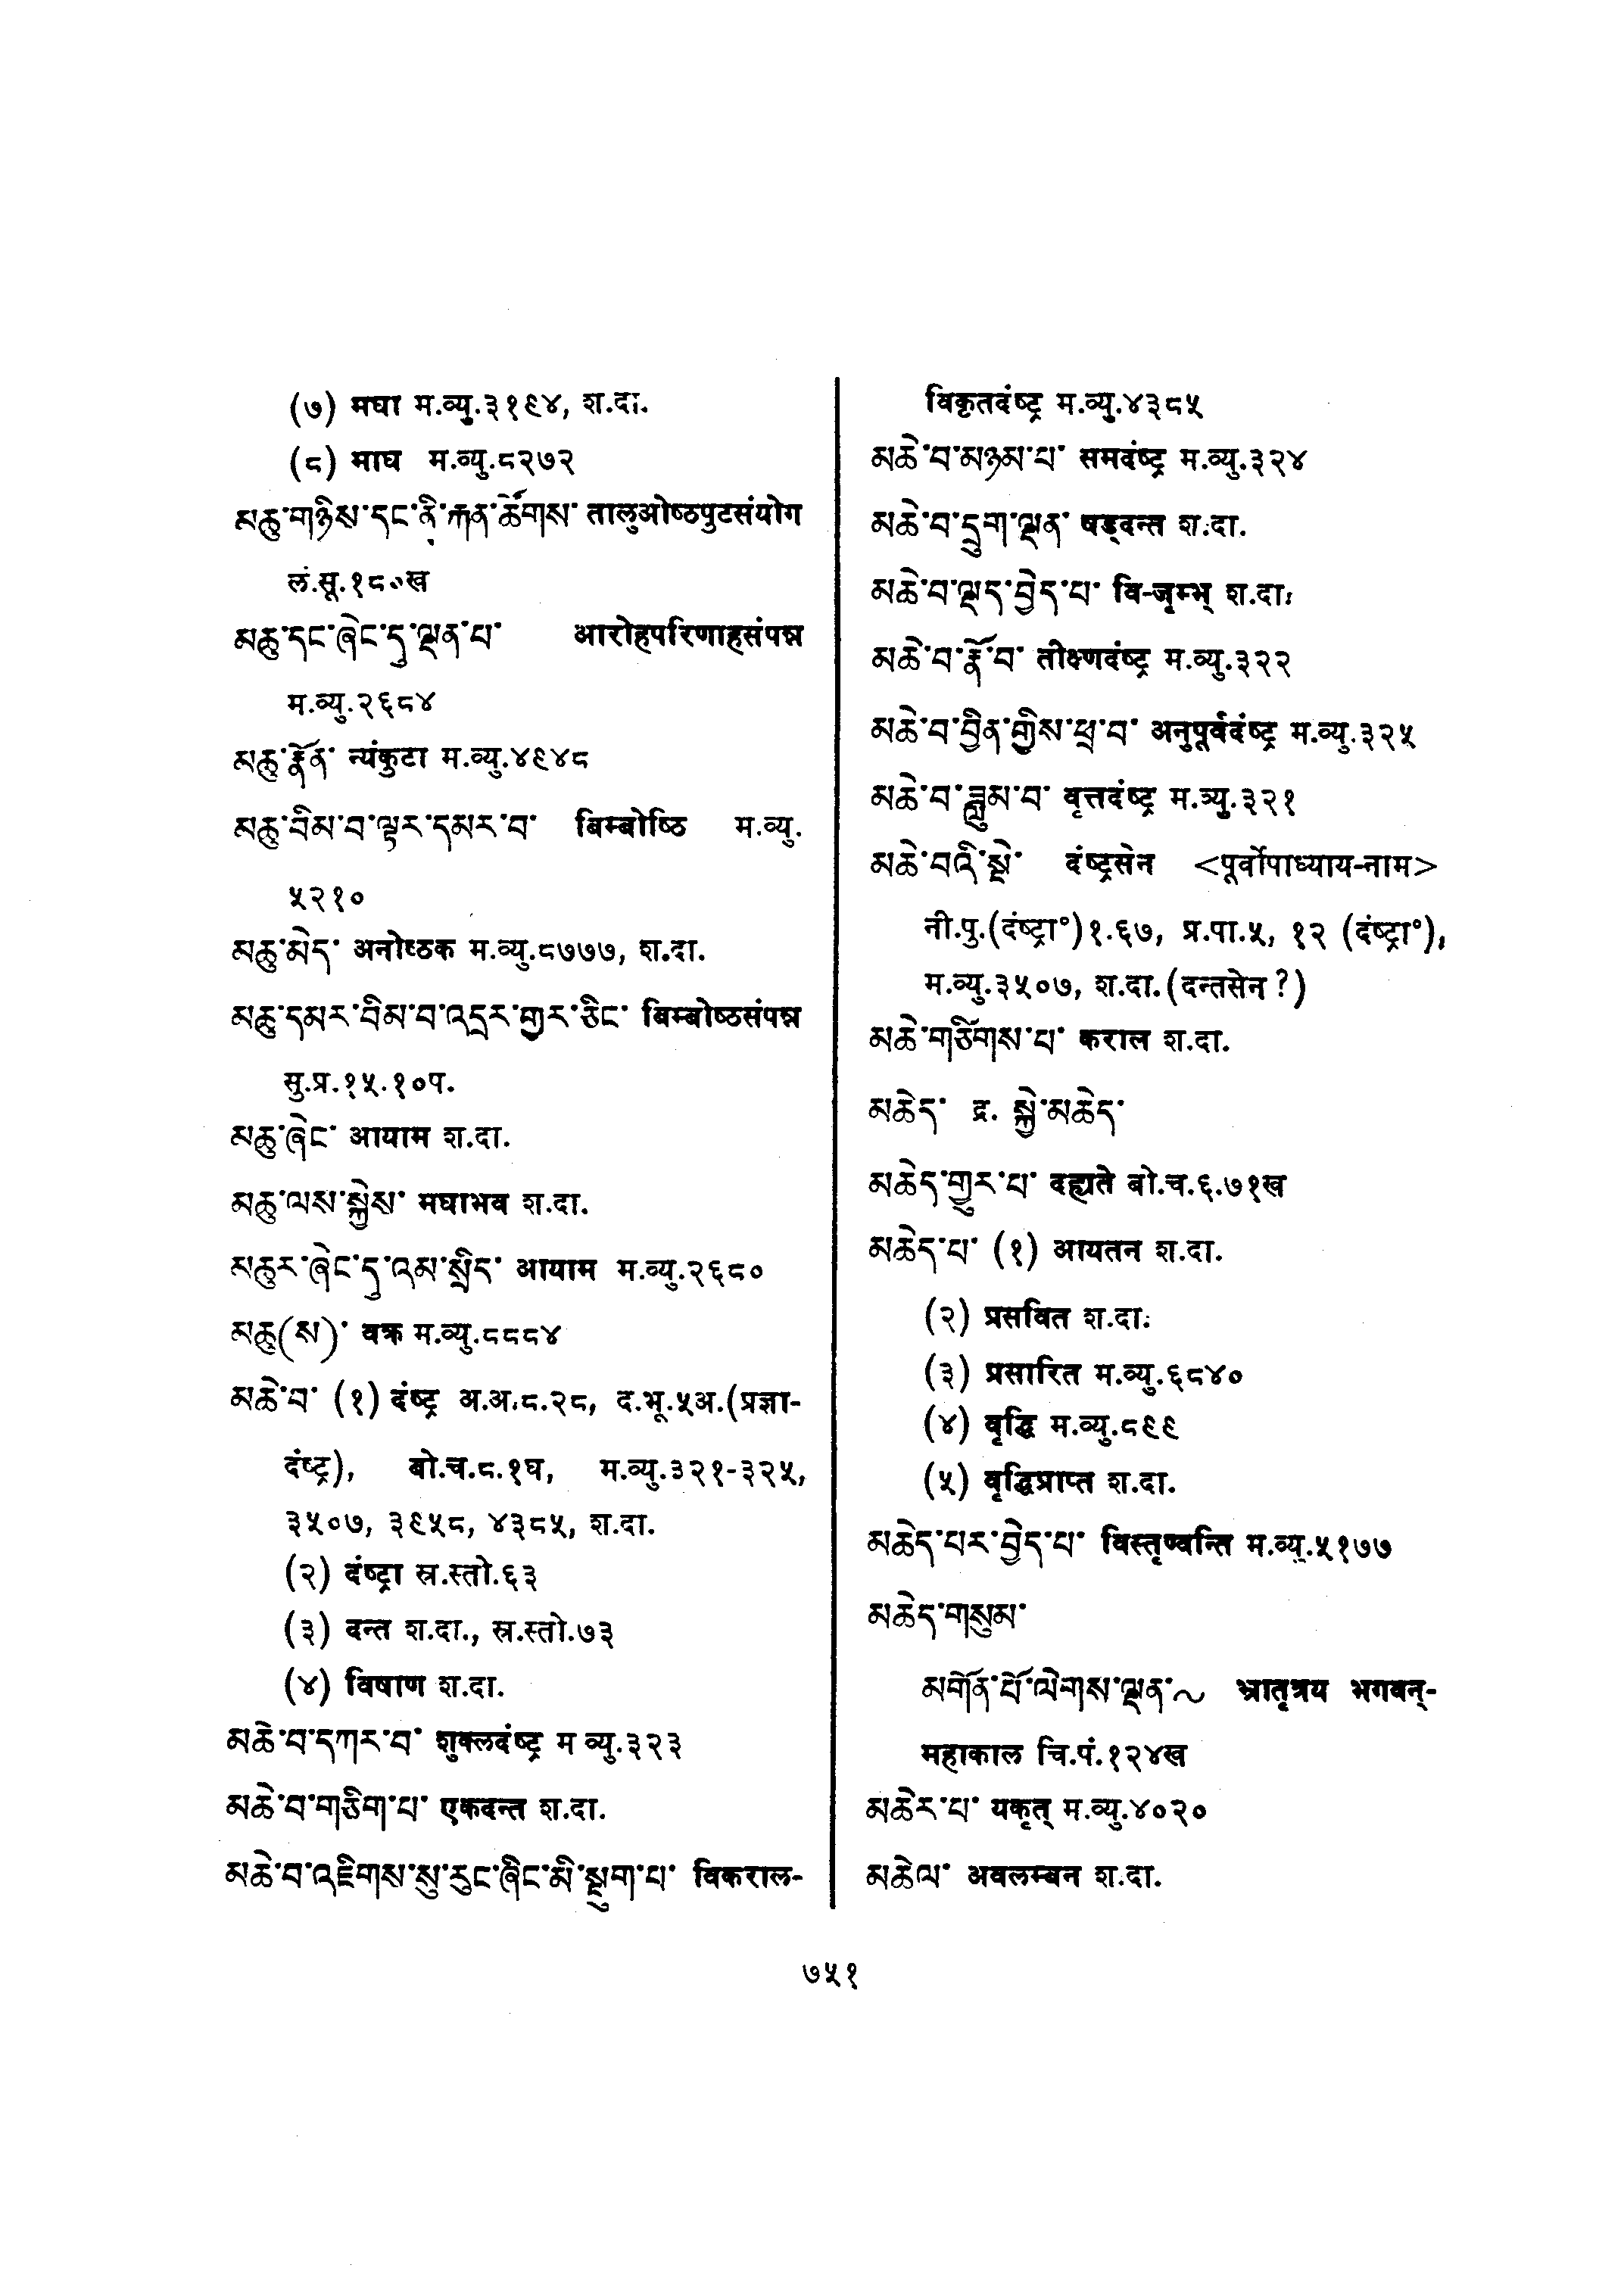 (७) मघा म.व्यु.३१९४, श.दा.
(८) माघ म.व्यु.८२७२
མཆུ་གཉིས་དང་ནི་རྐན་ཚོགས་ तालुओष्ठपुटसंयोग
लं.सू.१८०ख
མཆུ་དང་ཞེང་དུ་ལྡན་པ་ आरोहपरिणाहसंपन्न
म.व्यु.२६८४
མཆུ་རྣོན་ न्यंकुटा म.व्यु.४९४८
མཆུ་བིམ་བ་ལྟར་དམར་བ་ बिम्बोष्ठि म.व्यु.
५२१०
མཆུ་མེད་ अनोष्ठक म.व्यु.८७७७, श.दा.
མཆུ་དམར་བིམ་བ་འདྲར་གྱུར་ཅིང་ बिम्बोष्ठसंपन्न
सु.प्र.१५.१०प.
མཆུ་ཞེང་ आयाम श.दा.
མཆུ་ལས་སྐྱེས་ मघाभव श.दा.
མཆུར་ཞེང་དུ་འམ་སྲིད་ आयाम म.व्यु.२६८०
མཆུ(ས)་ वक्र म.व्यु.८८८४
མཆེ་བ་ (१) दंष्ट्र अ.अ.८.२८, द.भू.५अ.(प्रज्ञा-
दंष्ट्र), बो.च.८.१घ, म.व्यु.३२१-३२५,
३५०७, ३९५८, ४३८५, श.दा.
(२) दंष्ट्रा स्र.स्तो.६३
(३) दन्त श.दा., स्र.स्तो.७३
(४) विषाण श.दा.
མཆེ་བ་དཀར་བ་ शुक्लदंष्ट्र म व्यु.३२३
མཆེ་བ་གཅིག་པ་ एकदन्त श.दा.
མཆེ་བ་འཇིགས་སུ་རུང་ཞིང་མི་སྡུག་པ་ विकराल-
विकृतदंष्ट्र म.व्यु.४३८५
མཆེ་བ་མཉམ་པ་ समदंष्ट्र म.व्यु.३२४
མཆེ་བ་དྲུག་ལྡན་ षड्दन्त श.दा.
མཆེ་བ་ལྡད་བྱེད་པ་ वि-जृम्भ् श.दा.
མཆེ་བ་རྣོ་བ་ तीक्ष्णदंष्ट्र म.व्यु.३२२
མཆེ་བ་བྱིན་གྱིས་ཕྲ་བ་ अनुपूर्वदंष्ट्र म.व्यु.३२५
མཆེ་བ་ཟླུམ་བ་ वृत्तदंष्ट्र म.व्यु.३२१
མཆེ་བའི་སྡེ་ दंष्ट्रसेन <पूर्वोपाध्याय-नाम>
नी.पु.(दंष्ट्रा°)१.६७, प्र.पा.५, १२ (दंष्ट्रा°),
म.व्यु.३५०७, श.दा.(दन्तसेन ?)
མཆེ་གཙིགས་པ་ कराल श.दा.
མཆེད་ द्र. སྐྱེ་མཆེད་
མཆེད་གྱུར་པ་ दह्यते बो.च.६.७१ख
མཆེད་པ་ (१) आयतन श.दा.
(२) प्रसवित श.दा.
(३) प्रसारित म.व्यु.६८४०
(४) वृद्धि म.व्यु.८९९
(५) वृद्धिप्राप्त श.दा.
མཆེད་པར་བྱེད་པ་ विस्तृण्वन्ति म.व्यु.५१७७
མཆེད་གསུམ་
མགོན་པོ་ལེགས་ལྡན་~ भ्रातृत्रय भगवन्-
महाकाल चि.पं.१२४ख
མཆེར་པ་ यकृत् म.व्यु.४०२०
མཆེལ་ अवलम्बन श.दा.
७५१